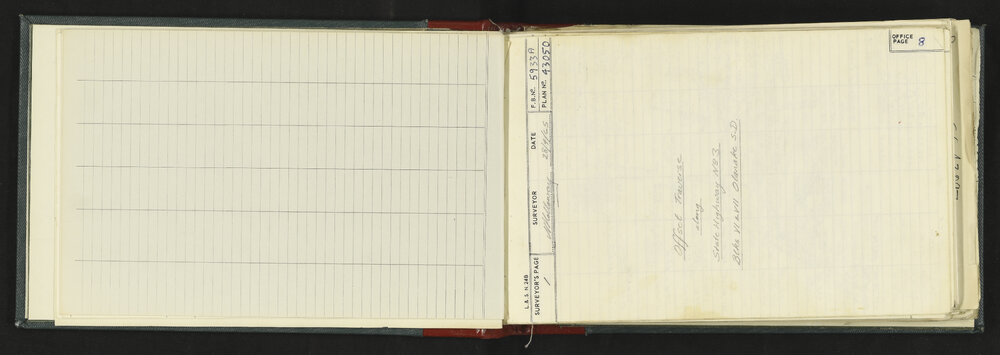 OFFICE
PAGE 8
L. & S. N. 249
SURVEYOR'S PAGE
1
SURVEYOR
DATE
F.B. Nº. 5933A
PLAN Nº. 43050
Offset Traverse
along
State Highway No 3
Blks VI & VII
S.D.